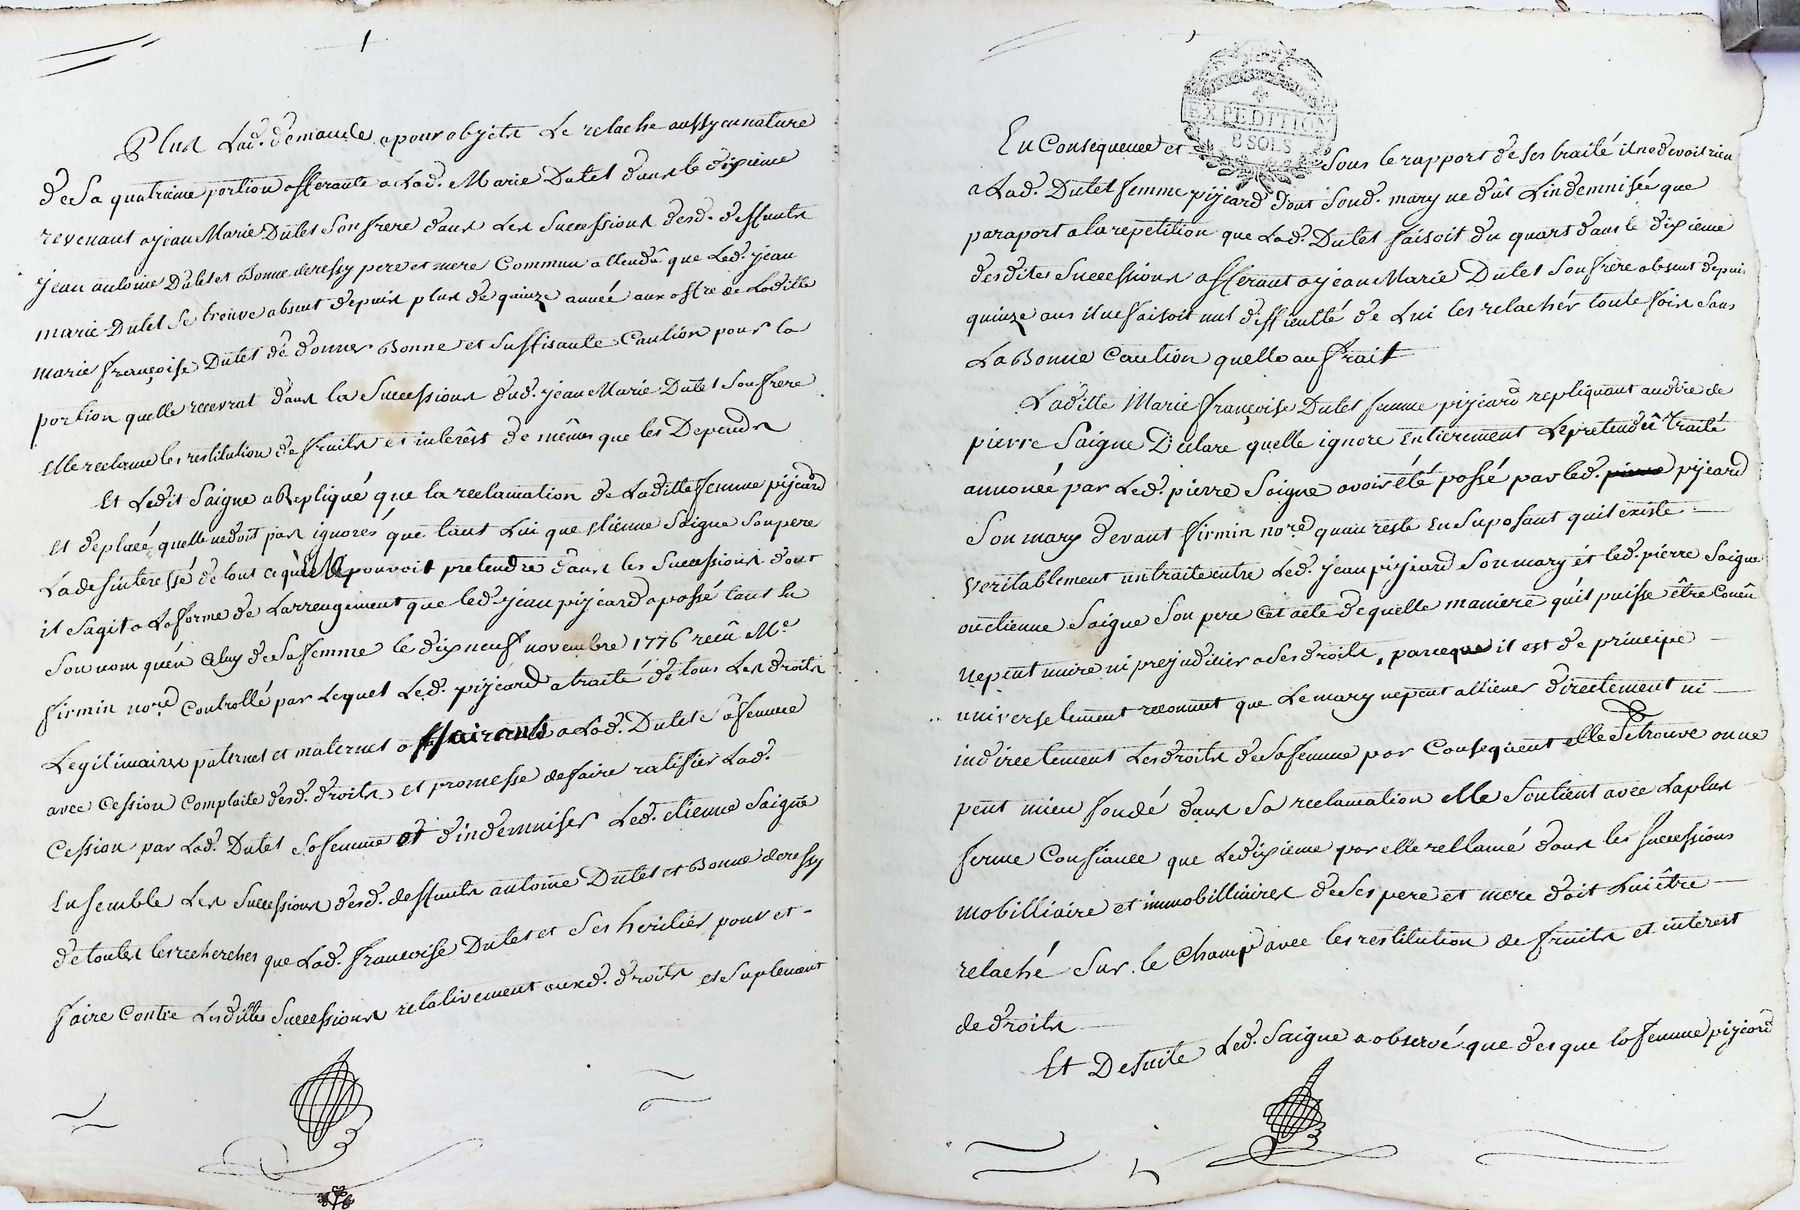 Plus Lad. demande a pour objets Le relache aussy en nature
de Sa quatrieme portion afferante a Lad. Marie Dutet dans le dixieme
revenant a jean Marie Dutet Son frere dans Les Successions desd. deffunts
jean antoine Dutet et Bonne deressy pere et mere Commun attendû que Led. jean
marie Dutet Se trouve absent depuis plus de quinze année aux offre de Laditte
marie françoise Dutet de donner Bonne et Suffisante Caution pour la
portion quelle recevrat dans la Succession dud. jean Marie Dutet Son frere
Elle reclame les restitution de fruits et interêst de mêmes que les Depends
Et Ledit Saigne a Repliqué que la reclamation de Laditte femme pijeard
Est deplacé quelle ne doit pas ignorés que tant Lui que Etienne Saigne Son pere
La desinteressé de tout ce quelle pouvoit pretendre dans les Successions dont
il Sagit a La forme de Larrengement que led. jean pijeard a passé tant En
Son nom quén Celuy de Sa femme le dixneuf novembre 1776 recû Me.
firmin nore. Controllé par Lequel Led. pijeard a traité de tous Les droits
Legitimaires paternel et maternel affairants a Lad. Dutet Sa femme
avec Cession Complaite desd. droits et promesse de faire ratifier Lad.
Cession par Lad. Dutet Sa femme et dindemniser Led. etienne Saigne
Ensemble Les Successions desd. deffunts antoine Dutet et Bonne deressy
de toutes les recherches que Lad. francoise Dutet et Ses heritier pouret-
faire Contre Lesdittes Successions relativement auxd. droits et Suplement
EXPEDITION
8 SOLS
En Consequence et Sous le rapport de Ses traité il ne devoit rien
a Lad. Dutet femme pijeard dont Sond. mary ne dût Lindemnisée que
par aport a la repetition que Lad. Dutet faisoit du quart dans le dixieme
desdites Successions afferant a jean Marie Dutet Son frere absent depuis
quinze ans il ne faisoit nul difficulté de Lui les relachér toute fois Sous
La Bonne Caution quelle aufrait
Laditte Marie françoise Dutet femme pijeard repliquant audire de
pierre Saigne Déclare quelle ignore Entierement Le pretendû traité
annoncée par Led. pierre Saigne avoir été passé par led. pijeard
Son mary devant firmin nore. quau reste En Suposant quil existe
Veritablement un traite entre Led. jean pijeard Son mary et led. pierre Saigne
ou etienne Saigne Son pere Cet acte de quelle maniere quil puisse être Conçû
ne peut nuire ni prejudicier a Ses droits, parceque il est de principe
universelement reconnut que Le mary ne peut alliener directement ni
indirectement Les droits de Sa femme par Consequent elle Se trouve on ne
peut mieu fondé dans Sa reclamation elle Soutient avec La plus
ferme Confiance que Le dixieme par elle rellamé dans les Successions
mobilliaire et immobilliaires de Ses pere et mere doit Lui être
relaché Sur le Champ avec les restitution de fruits et interest
de droits
Et De Suite Led. Saigne a observé que des que la femme pijeard